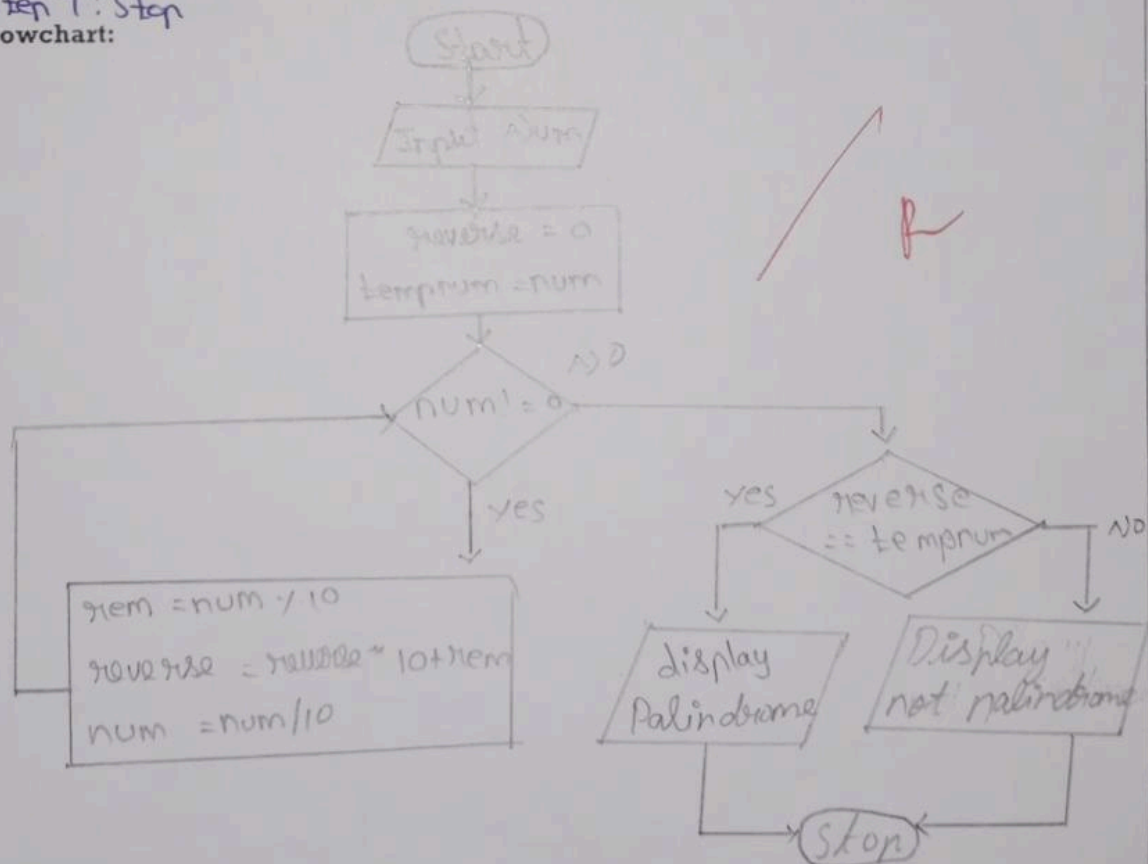 Step 7: Stop
owchart:
Start
Input Num
reverse = 0
tempnum = num
num != 0
NO
yes
rem = num % 10
reverse = reverse * 10 + rem
num = num/10
reverse
== tempnum
yes
NO
display
Palindrome
Display
not palindrome
Stop